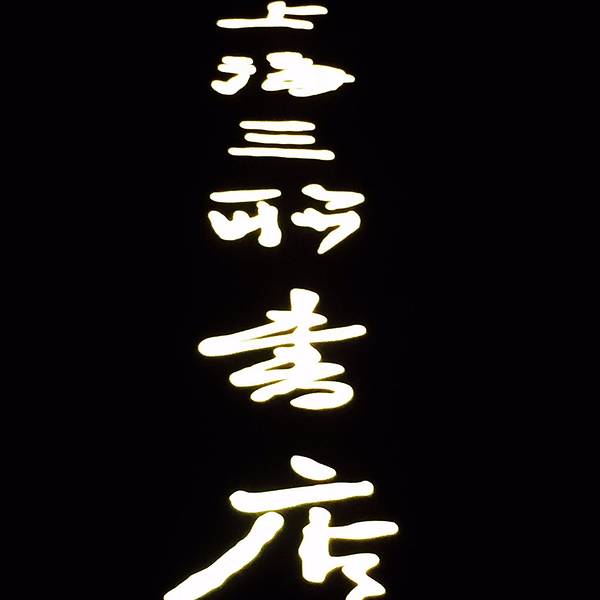 上海三聯書店